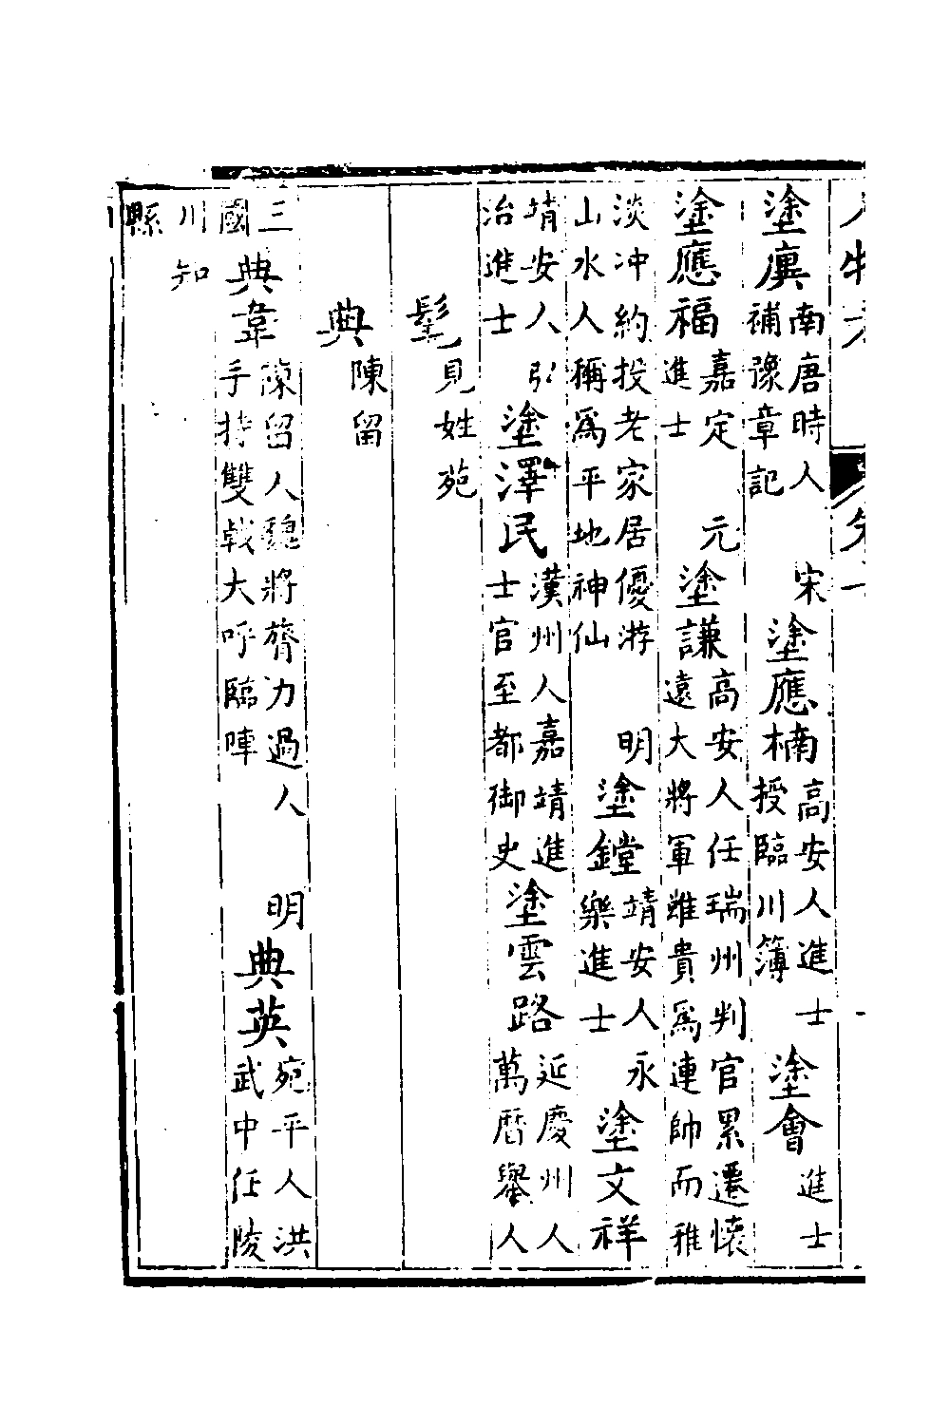 塗廙南唐時人補豫章記 宋塗應楠高安人進士授臨川簿 塗會進士
塗應福嘉定進士 元塗謙高安人任瑞州判官累遷懷遠大將軍雖貴爲連帥而雅
淡冲約投老家居優游山水人稱爲平地神仙 明塗鏜靖安人永樂進士 塗文祥
靖安人弘治進士 塗澤民漢州人嘉靖進士官至都御史 塗雲路延慶州人萬曆舉人
見姓苑
典陳留
三國典韋陳留人魏將膂力過人手持雙戟大呼臨陣 明典英宛平人洪武中任陵
川知縣